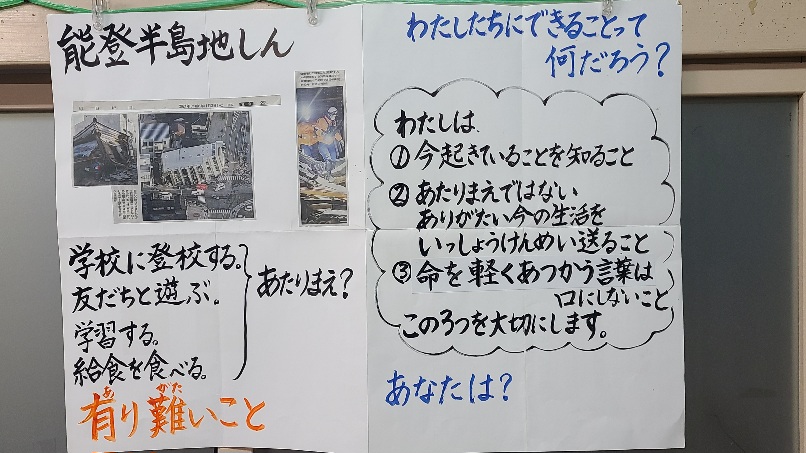 能登半島地しん
学校に登校する。
友だちと遊ぶ。
学習する。
給食を食べる。
あたりまえ?
有り難いこと
あ がた
わたしたちにできることって
何だろう?
わたしは、
①今起きていることを知ること
②あたりまえではない
ありがたい今の生活を
いっしょうけんめい送ること
③命を軽くあつかう言葉は
口にしないこと
この3つを大切にします。
あなたは?